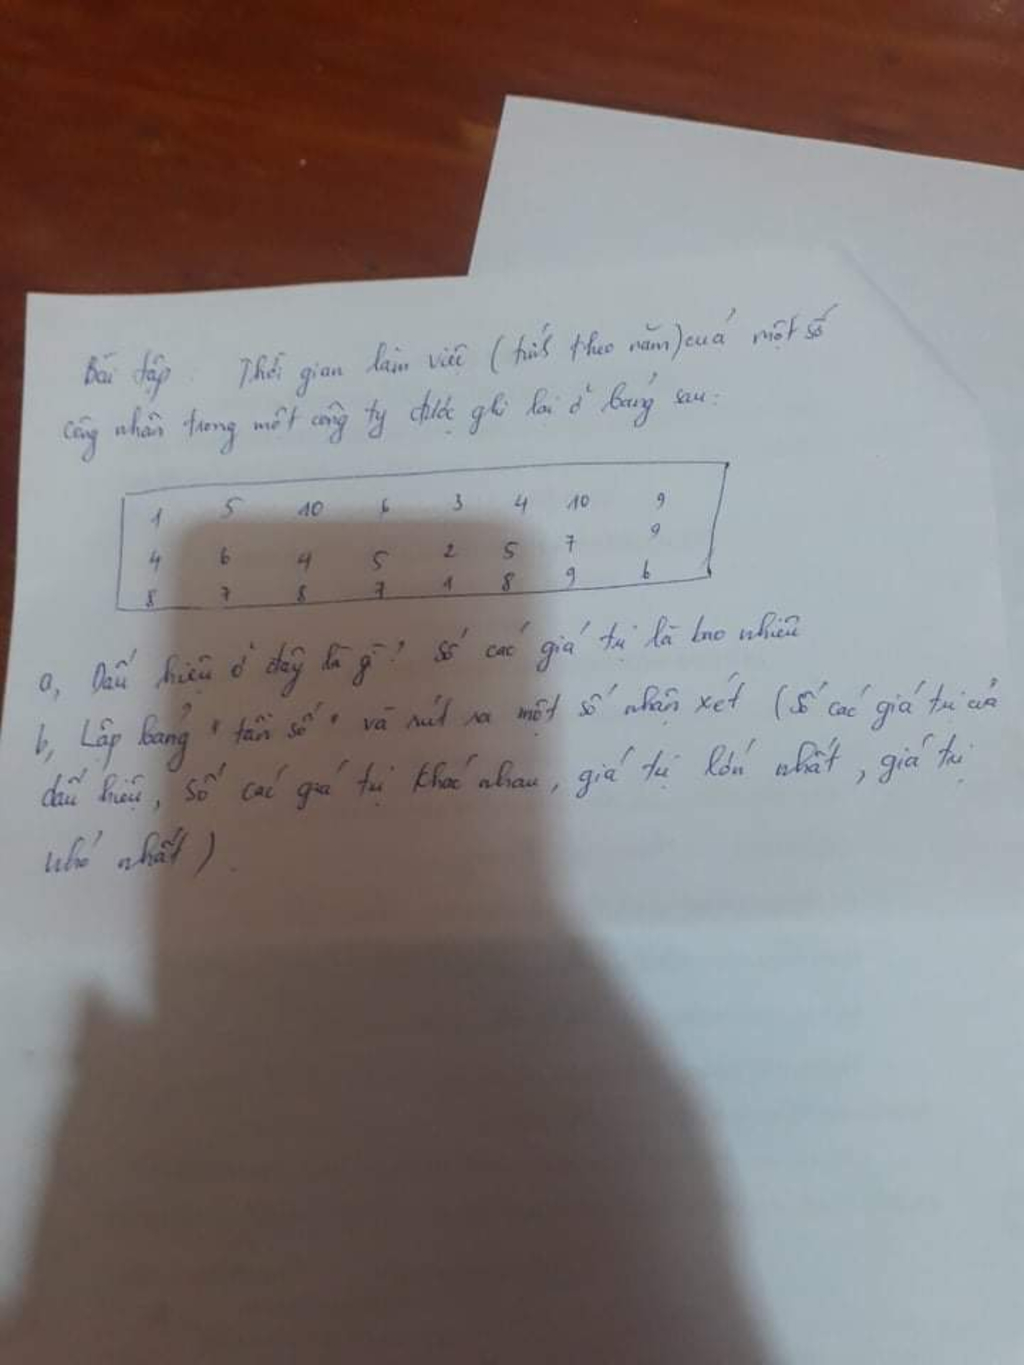 Bài tập : Thời gian làm việc (tính theo năm) của một số
công nhân trong một công ty được ghi lại ở bảng sau:
1 5 10 6 3 4 10 9
4 6 4 5 2 5 7 9
8 7 8 7 1 8 9 6
a, Dấu hiệu ở đây là gì? Số các giá trị là bao nhiêu
b, Lập bảng "tần số" và rút ra một số nhận xét (Số các giá trị của
dấu hiệu, số các giá trị khác nhau, giá trị lớn nhất, giá trị
nhỏ nhất).